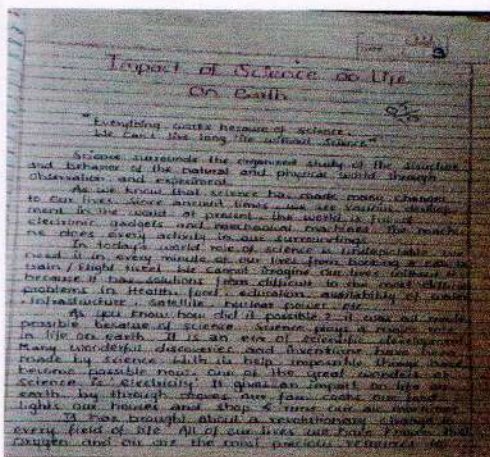 Impact of Science on Life
on Earth
"Everything works because of science.
We can't live long life without science"
Science surrounds the organised study of the structure
and behavior of the natural and physical world through
observation and experiment.
As we know that science has made many changes
to our lives. Since ancient times we saw various develop
ment in the world at present the world is full of
electronic gadgets and mechanical machines. The machi
ne does every activity in our surroundings.
In today's world role of science is indispensable we
need it in every minute of our lives from booking a cab to
train / flight ticket. We cannot imagine our lives without it
because it has solutions from difficult to the most difficult
problems in Health, food, education, availability of water
infrastructure, satellite, nuclear power etc.
As you know how did it possible? it was only made
possible because of science. Science plays a major role
in life on earth. It is an era of scientific development
Many wonderful discoveries and inventions have been
made in science with its help impossible things have
become possible now. One of the great wonders of
science is 'electricity'. It gives an impact on life on
earth by through drives our fans cooks our food
lights our houses and shop & runs our
It has brought about a revolutionary change in
every field of life. All of our lives we have known that
oxygen and air are the most precious resources for